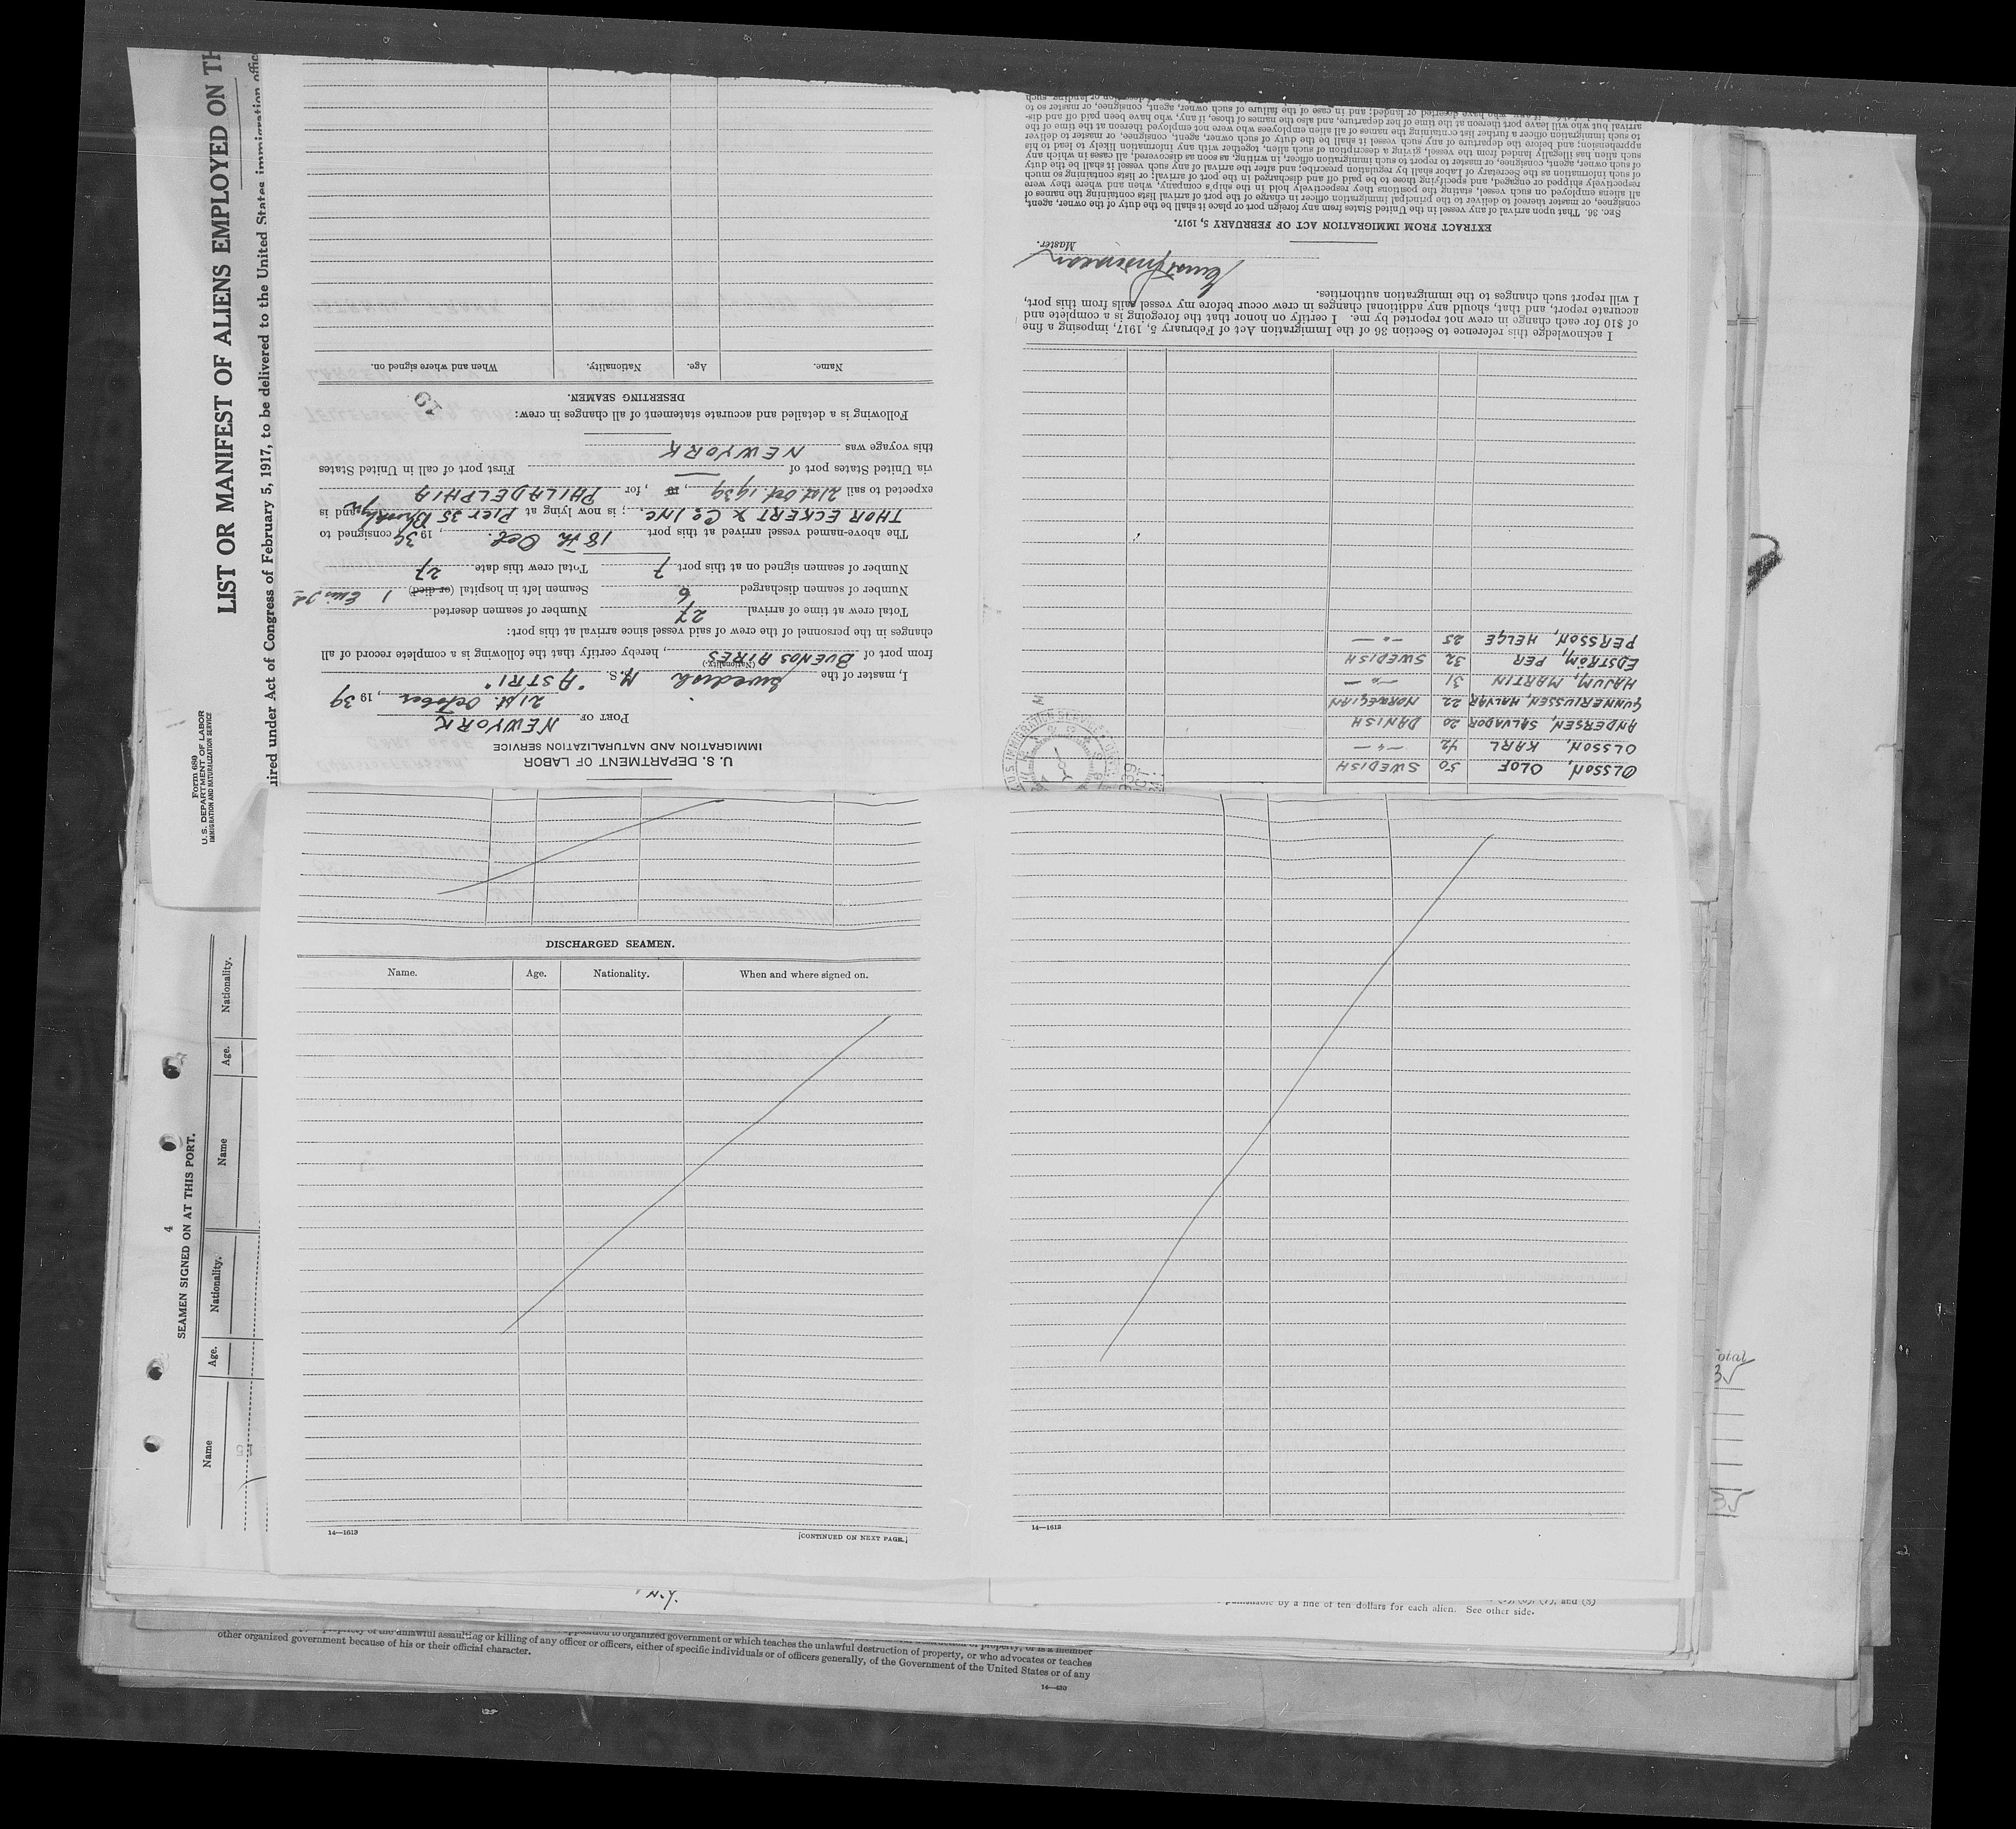 Form 680
U. S. DEPARTMENT OF LABOR
IMMIGRATION AND NATURALIZATION SERVICE
LIST OR MANIFEST OF ALIENS EMPLOYED ON TH
ired under Act of Congress of February 5, 1917, to be delivered to the United States immigration offic
4
SEAMEN SIGNED ON AT THIS PORT.
Name Age. Nationality. Name Age. Nationality.
U. S. DEPARTMENT OF LABOR
IMMIGRATION AND NATURALIZATION SERVICE
PORT OF NEWYORK
21st. October, 1939
I, master of the Swedish M.S. "ASTRI"
(Nationality.)
from port of BUENOS AIRES, hereby certify that the following is a complete record of all
changes in the personnel of the crew of said vessel since arrival at this port:
Total crew at time of arrival 27 Number of seamen deserted
Number of seamen discharged 6 Seamen left in hospital (or died) 1
Number of seamen signed on at this port 7 Total crew this date 27
The above-named vessel arrived at this port 18th Oct., 1939 consigned to
THOR ECKERT & Co. INC.; is now lying at PIER 35 Brooklyn and is
expected to sail 21st. Oct. 1939, 19, for PHILADELPHIA
via United States port of — First port of call in United States
this voyage was NEWYORK
Following is a detailed and accurate statement of all changes in crew:
DESERTING SEAMEN.
Name. Age. Nationality. When and where signed on.
OLSSON, OLOF 50 SWEDISH
OLSSON, KARL 42 —"—
ANDERSEN, SALVADOR 20 DANISH
GUNNERIUSSEN, HALVAR 22 NORWEGIAN
HAJUM, MARTIN 31 —"—
EDSTRÖM, PER 32 SWEDISH
PERSSON, HELGE 25 —"—
I acknowledge this reference to Section 36 of the Immigration Act of February 5, 1917, imposing a fine
of $10 for each change in crew not reported by me. I certify on honor that the foregoing is a complete and
accurate report, and that, should any additional changes in crew occur before my vessel sails from this port,
I will report such changes to the immigration authorities.
Master.
EXTRACT FROM IMMIGRATION ACT OF FEBRUARY 5, 1917.
Sec. 36. That upon arrival of any vessel in the United States from any foreign port or place it shall be the duty of the owner, agent,
consignee, or master thereof to deliver to the principal immigration officer in charge of the port of arrival lists containing the names of
all aliens employed on such vessel, stating the positions they respectively hold in the ship's company, when and where they were
respectively shipped or engaged, and specifying those to be paid off and discharged in the port of arrival; or lists containing so much
of such information as the Secretary of Labor shall by regulation prescribe; and after the arrival of any such vessel it shall be the duty
of such owner, agent, consignee, or master to report to such immigration officer, in writing, as soon as discovered, all cases in which any
such alien has illegally landed from the vessel, giving a description of such alien, together with any information likely to lead to his
apprehension; and before the departure of any such vessel it shall be the duty of such owner, agent, consignee, or master to deliver
to such immigration officer a further list containing the names of all alien employees who were not employed thereon at the time of the
arrival but who will leave port thereon at the time of her departure, and also the names of those, if any, who have been paid off and dis-
if any, who have deserted or landed; and in case of the failure of such owner, agent, consignee, or master so to
DISCHARGED SEAMEN.
Name. Age. Nationality. When and where signed on.
14—1613
[CONTINUED ON NEXT PAGE.]
14—1613
Total
35
35
N.Y.
by a fine of ten dollars for each alien. See other side.
opposition to organized government or which teaches the unlawful destruction of property, or is a member
of the unlawful assaulting or killing of any officer or officers, either of specific individuals or of officers generally, of the Government of the United States or of any
other organized government because of his or their official character.
14—430